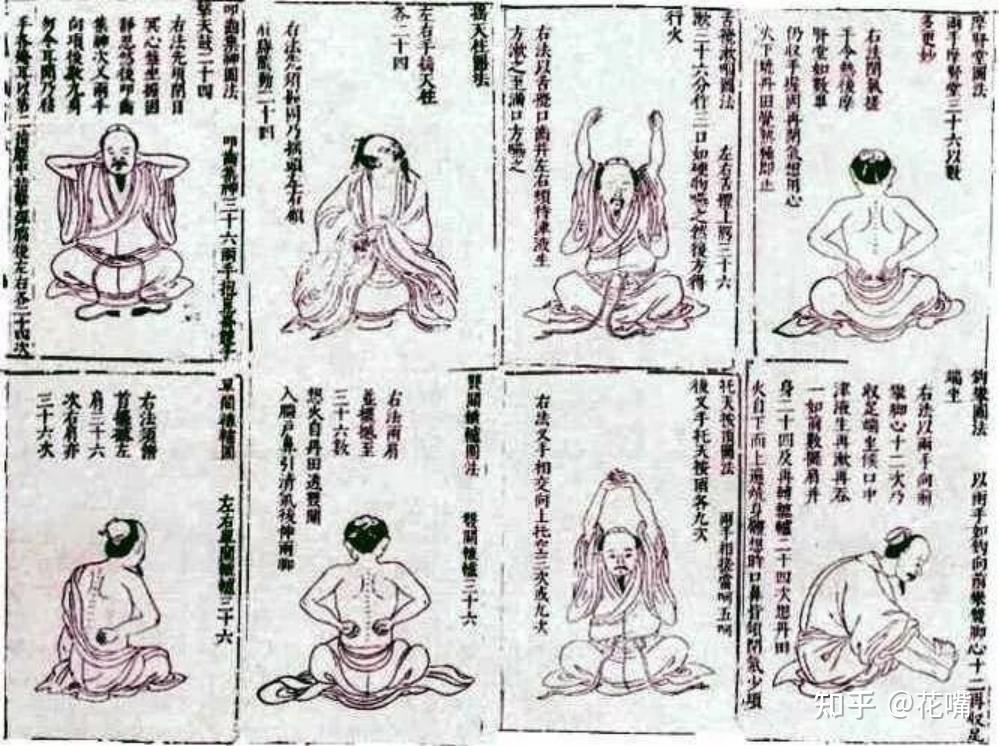 叩齒集神圖法 叩齒集神三十六兩手抱崑崙雙手
擊天鼓二十四
右法先須閉目
冥心盤坐握固
靜思然後叩齒
集神次叉兩手
向項後數九息
勿令耳聞乃移
手各掩耳以第二指壓中指擊彈腦後左右各二十四次
搖天柱圖法
左右手搖天柱
各二十四
右法先須握固乃搖頭左右顧
肩膊隨動二十四
舌攪漱咽圖法 左右舌攪上齶三十六
漱三十六分作三口如硬物嚥之然後方得
行火
右法以舌攪口齒并左右頰待津液生
方漱之至滿口方嚥之
摩腎堂圖法
兩手摩腎堂三十六以數
多更妙
右法閉氣搓
手令熱後摩
腎堂如數畢
仍收手握固再閉氣想用心
火下燒丹田覺熱極即止
單關轆轤圖 左右單關轆轤三十六
右法須俯
首擺撼左
肩三十六
次右肩亦
三十六次
雙關轆轤圖法 雙關轆轤三十六
右法兩肩
並擺撼至
三十六數
想火自丹田透雙關
入腦戶鼻引清氣後伸兩腳
托天按頂圖法 兩手相搓當呵五呵
後叉手托天按頂各九次
右法叉手相交向上托空三次或九次
鈎攀圖法 以兩手如鈎向前攀雙腳心十二再收足
端坐
右法以兩手向前
攀腳心十二次乃
收足端坐候口中
津液生再漱再吞
一如前數擺肩并
身二十四及再轉轆轤二十四次想丹田
火自下而上遍燒身體想時口鼻皆須閉氣少頃
知乎 @花嘴